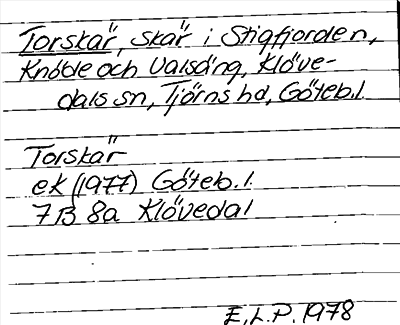 Torskär, skär i Stigfjorden,
Knöble och Valsäng, Klöve-
dals sn, Tjörns hd, Göteb.l.
Torskär
ek (1977) Göteb.l.
7B 8a Klövedal
E.L.P. 1978